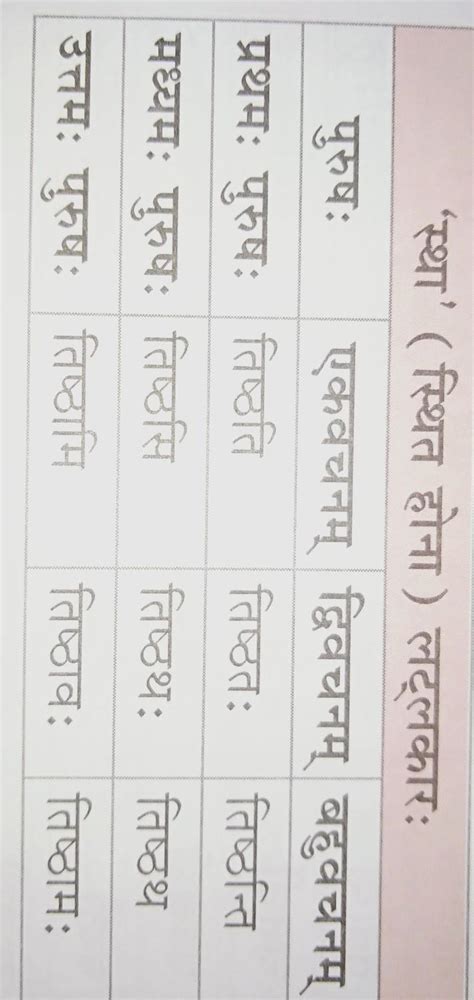 'स्था' ( स्थित होना ) लट्लकारः
पुरुषः एकवचनम् द्विवचनम् बहुवचनम्
प्रथमः पुरुषः तिष्ठति तिष्ठतः तिष्ठन्ति
मध्यमः पुरुषः तिष्ठसि तिष्ठथः तिष्ठथ
उत्तमः पुरुषः तिष्ठामि तिष्ठावः तिष्ठामः